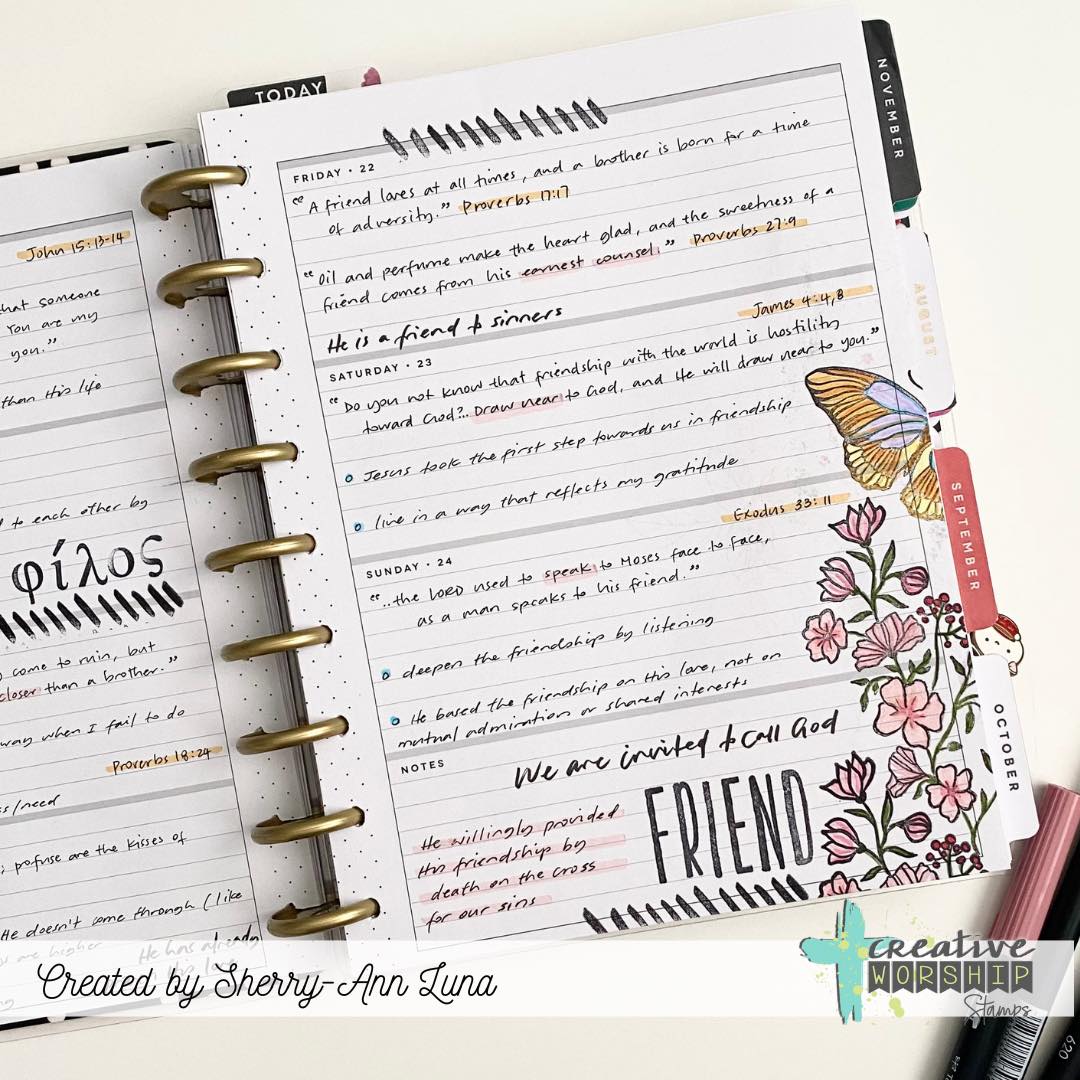 TODAY
John 15:13-14
that someone
You are my
you."
than His life
to each other by
φίλος
come to ruin, but
closer than a brother."
way when I fail to do
Proverbs 18:24
ss/need
; profuse are the kisses of
He doesn't come through (like
are higher
He has already
FRIDAY • 22
"A friend loves at all times, and a brother is born for a time
of adversity." Proverbs 17:17
"Oil and perfume make the heart glad, and the sweetness of a
friend comes from his earnest counsel." Proverbs 27:9
He is a friend to sinners
James 4:4,8
SATURDAY • 23
"Do you not know that friendship with the world is hostility
toward God?.. Draw near to God, and He will draw near to you."
Jesus took the first step towards us in friendship
live in a way that reflects my gratitude
Exodus 33:11
SUNDAY • 24
"..the LORD used to speak to Moses face to face,
as a man speaks to his friend."
deepen the friendship by listening
He based the friendship on His love, not on
mutual admiration or shared interests
NOTES
We are invited to call God
FRIEND
He willingly provided
His friendship by
death on the cross
for our sins
NOVEMBER
AUGUST
SEPTEMBER
OCTOBER
620
Created by Sherry-Ann Luna
creative
WORSHIP
Stamps